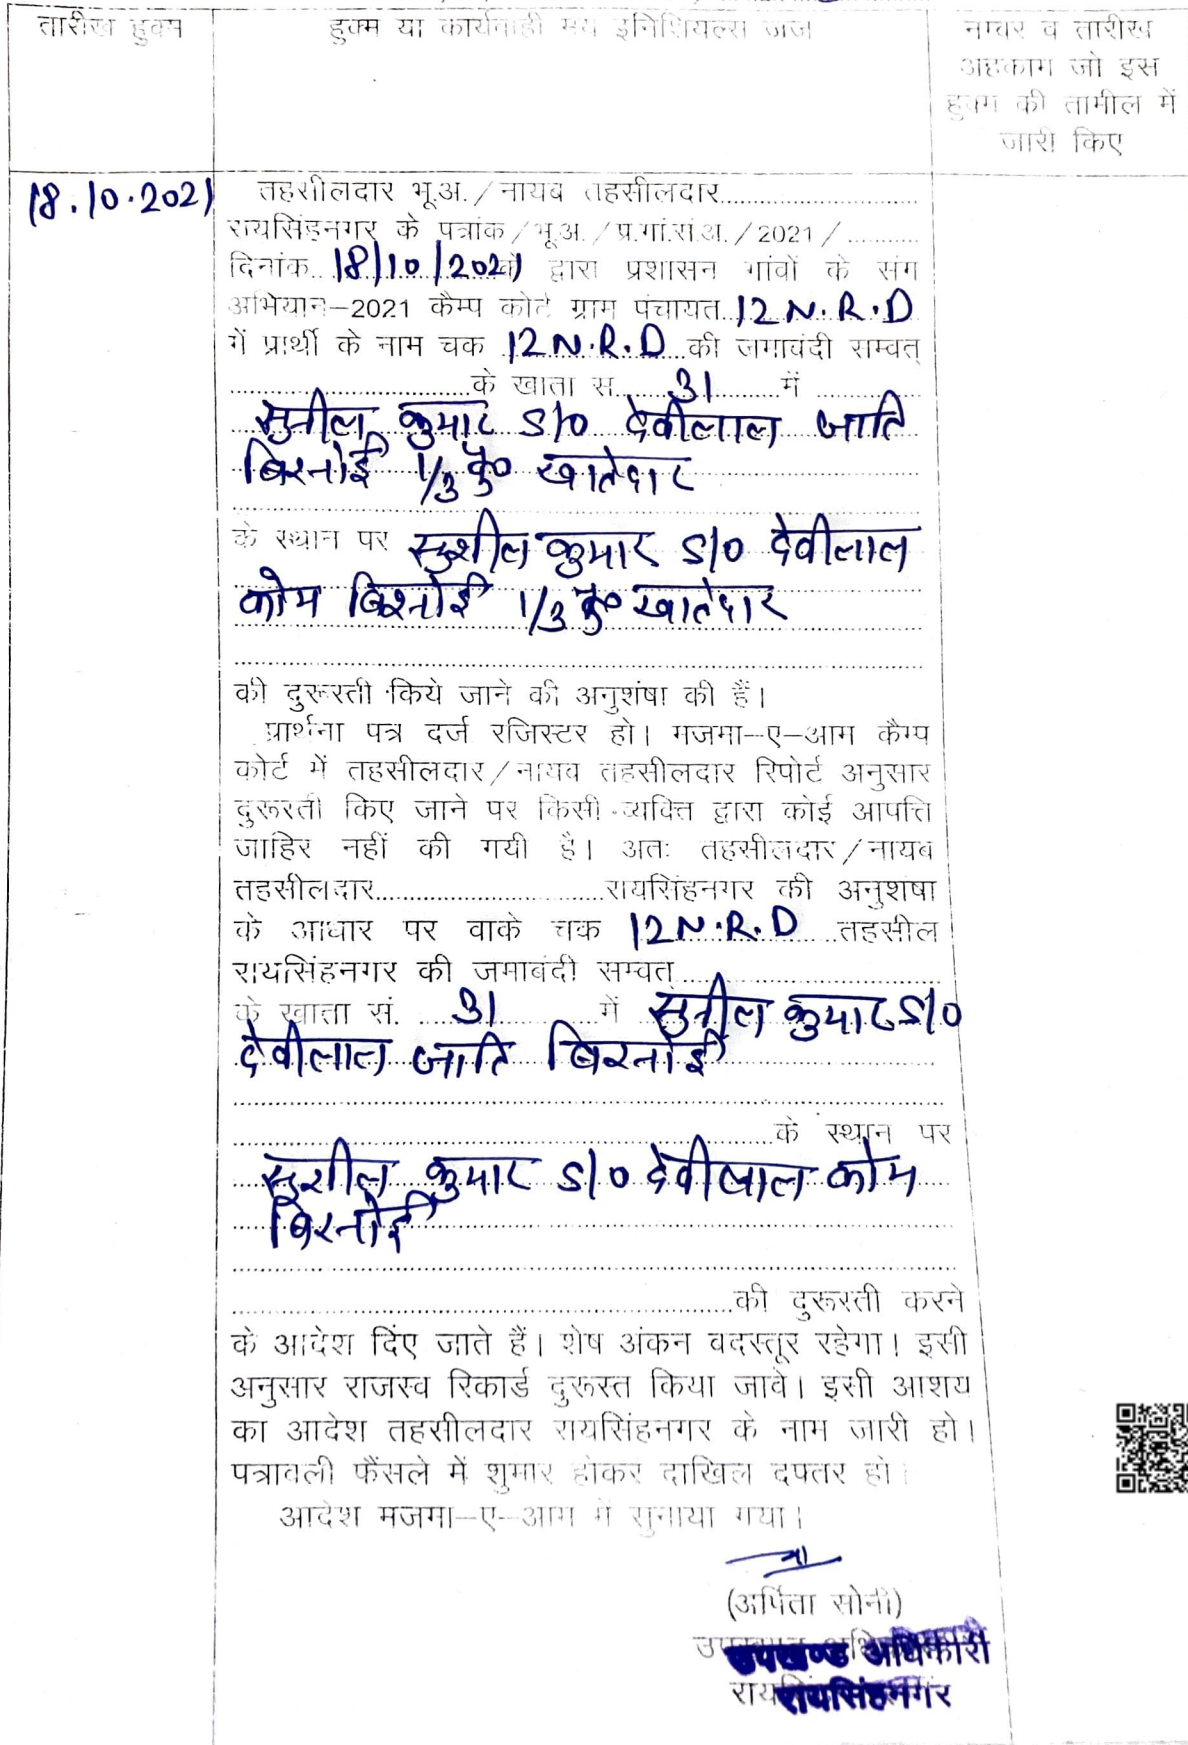 तारीख हुक्म
हुक्म या कार्यवाही मय इनिशियल्स जज
नम्बर व तारीख
अहकाम जो इस
हुक्म की तामील में
जारी किए
18.10.2021
तहसीलदार भू.अ./नायब तहसीलदार..............................
रायसिंहनगर के पत्रांक/भू.अ./प्र.गां.सं.अ./2021/..........
दिनांक..18/10/2021 को द्वारा प्रशासन गांवों के संग
अभियान-2021 कैम्प कोर्ट ग्राम पंचायत..12 N.R.D
में प्रार्थी के नाम चक 12 N.R.D...की जमाबंदी सम्वत्
..............................के खाता स.....31.........में ..................
सुनील कुमार S/o देवीलाल जाति
बिश्नोई 1/3 हि० खातेदार
के स्थान पर सुशील कुमार S/o देवीलाल
कोम बिश्नोई 1/3 हि० खातेदार
की दुरूस्ती किये जाने की अनुशंषा की हैं।
प्रार्थना पत्र दर्ज रजिस्टर हो। मजमा-ए-आम कैम्प
कोर्ट में तहसीलदार/नायब तहसीलदार रिपोर्ट अनुसार
दुरूस्ती किए जाने पर किसी व्यक्ति द्वारा कोई आपत्ति
जाहिर नहीं की गयी है। अतः तहसीलदार/नायब
तहसीलदार..............................रायसिंहनगर की अनुशषा
के आधार पर वाके चक 12 N.R.D ...तहसील
रायसिंहनगर की जमाबंदी सम्वत्..............................
के खाता सं. .....31..........में सुनील कुमार S/o
देवीलाल जाति बिश्नोई
..............................के स्थान पर
सुशील कुमार S/o देवीलाल कोम
बिश्नोई
..............................की दुरूस्ती करने
के आदेश दिए जाते हैं। शेष अंकन वदस्तूर रहेगा। इसी
अनुसार राजस्व रिकार्ड दुरूस्त किया जावे। इसी आशय
का आदेश तहसीलदार रायसिंहनगर के नाम जारी हो।
पत्रावली फैंसले में शुमार होकर दाखिल दफ्तर हो।
आदेश मजमा-ए-आम में सुनाया गया।
(अर्पिता सोनी)
उपखण्ड अधिकारी
रायसिंहनगर